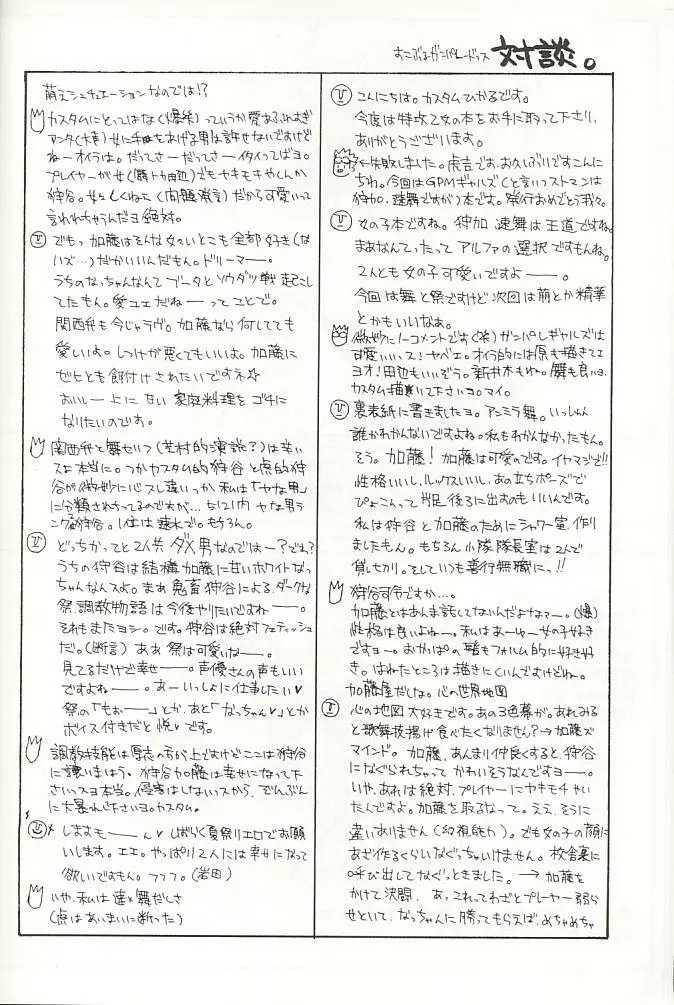 すこぶるガンパレードっス 対談。
こんにちは。カスタムひかるです。
今度は特攻乙女の本をお手に取って下さり、
ありがとうございます。
←失敗しました。虎吉です、お久いぶりですこんに
ちわ。今回はGPMギャルズ(と言いつストマンは
狩加、速舞ですが)本です。発行おめでとう我々。
女の子本ですね。狩加 速舞は王道ですね。
まあなんてったって アルファの選択ですもんね。
2人とも女の子可愛いですよーー。
今回は舞と祭ですけど次回は萌とか精華
とかもいいなぁ。
微妙にノーコメントです(笑)ガンパレギャルズは
可愛いっス!ヤベエ。オイラ的には原も描きてェ
ヨオ!田辺もいいぞう。新井木もね。舞も良いョ
カスタム描いて下さいヨ。マイ。
裏表紙に書きましたヨ。アンミラ舞。いっしゅん
誰かわかんないですよね。私もわかんなかったもん。
そう。加藤!加藤は可愛いのです。イヤマジで!!
性格いいし、ルックスいいし、あの立ちポーズで
ぴょこんって片足後ろに出すのもいいんです。
私は狩谷と加藤のためにシャワー室、作り
ましたもん。もちろん小隊隊長室は2人で
貸し切り。そしていつも善行無職にっ!!
狩谷司令ですか…。
加藤とはあんま話してないんだよなァー。(爆)
性格は良いよねー。私はあーゆー女の子好き
ですョー。おかっぱの髪もフォルム的に好き好
き。はねたところは描きにくいんですけどねー。
加藤屋だしな。心の世界地図
心の地図大好きです。あの3色幕が。あれみる
と歌舞伎揚げ食べたくなりません?→加藤ズ
マインド。加藤、あんまり仲良くすると、狩谷
になぐられちゃって かわいそうなんですヨーー。
いや、あれは絶対、プレイヤーにヤキモチやい
たんですよ。加藤を取るなって。ええ、そうに
違いありません(幻視能力)。でも女の子の顔に
あざ作るくらいなぐっちゃいけません。校舎裏に
呼び出してなぐっときました。→加藤を
かけて決闘。あ、これってわざとプレーヤー弱ら
せといて、なっちゃんに勝ってもらえば、めちゃめちゃ
萌えシチュエーションなのでは!?
カスタムにとってはな(爆笑)っていうか愛あふれすぎ
アンタ(大声)女に手をあげる男は許せないですけど
ねーオイラは。だってさーだってさーイタイってばヨ。
プレイヤーが女でもヤキモチやくんか
狩谷。女々しくねェ(問題発言)だから可愛いって
言われちゃうんだヨ絶対。
でもっ 加藤はそんな女々いとこも全部好き(な
ハズ…)だからいいんだもん。ドリーマー。
うちのなっちゃんなんてブータとソウダツ戦起こし
てたもん。愛ユエだねーーってことで。
関西弁も今じゃラヴ。加藤なら何しても
愛しいよ。しつけが悪くてもいいよ。加藤に
ゼヒとも餌付けされたいですネ☆
おいしー上に安い家庭料理をゴチに
なりたいのです。
関西弁と舞せいつ(芝村的演説?)は辛い
スよ本当に。つかカスタム的狩谷と虎的狩
谷が微妙に心スレ違いっか私は「ヤな男」
に分類されちってるのですが…ちなみにヤな男ラ
ンク 狩谷。1位は速水で。もちろん。
どっちかってと2人共、ダメ男なのではー?でれ?
うちの狩谷は結構加藤に甘いホワイトなっ
ちゃんなんスよ。まあ鬼畜狩谷による、ダークな
祭、調教物語は今後やりたいですねーー。
それもまたヨシ。です。狩谷は絶対フェティッシュ
だ。(断言)ああ祭は可愛いねー。
見てるだけで幸せーー。声優さんの声もいい
ですよねーー。あーいっしょに仕事したい♥
祭の「もぉーー」とか、あと「なっちゃん♥」とか
ボイス付きだと悦♥です。
調教技能は厚志の方が上ですけどここは狩谷
に譲いましょう。狩谷加藤は幸せになって下
さいっスヨ本当。侵害はしないっスから、ぞんぶん
に大暴れ下さいヨ。カスタム。
しますもーーん♥しばらく夏祭りエロでお願
いします。エエ。やっぱり2人には幸せになって
欲しいですもん。フフフ。(岩田)
いや、私は速×舞だしさ
(虎はあいまいに断った)